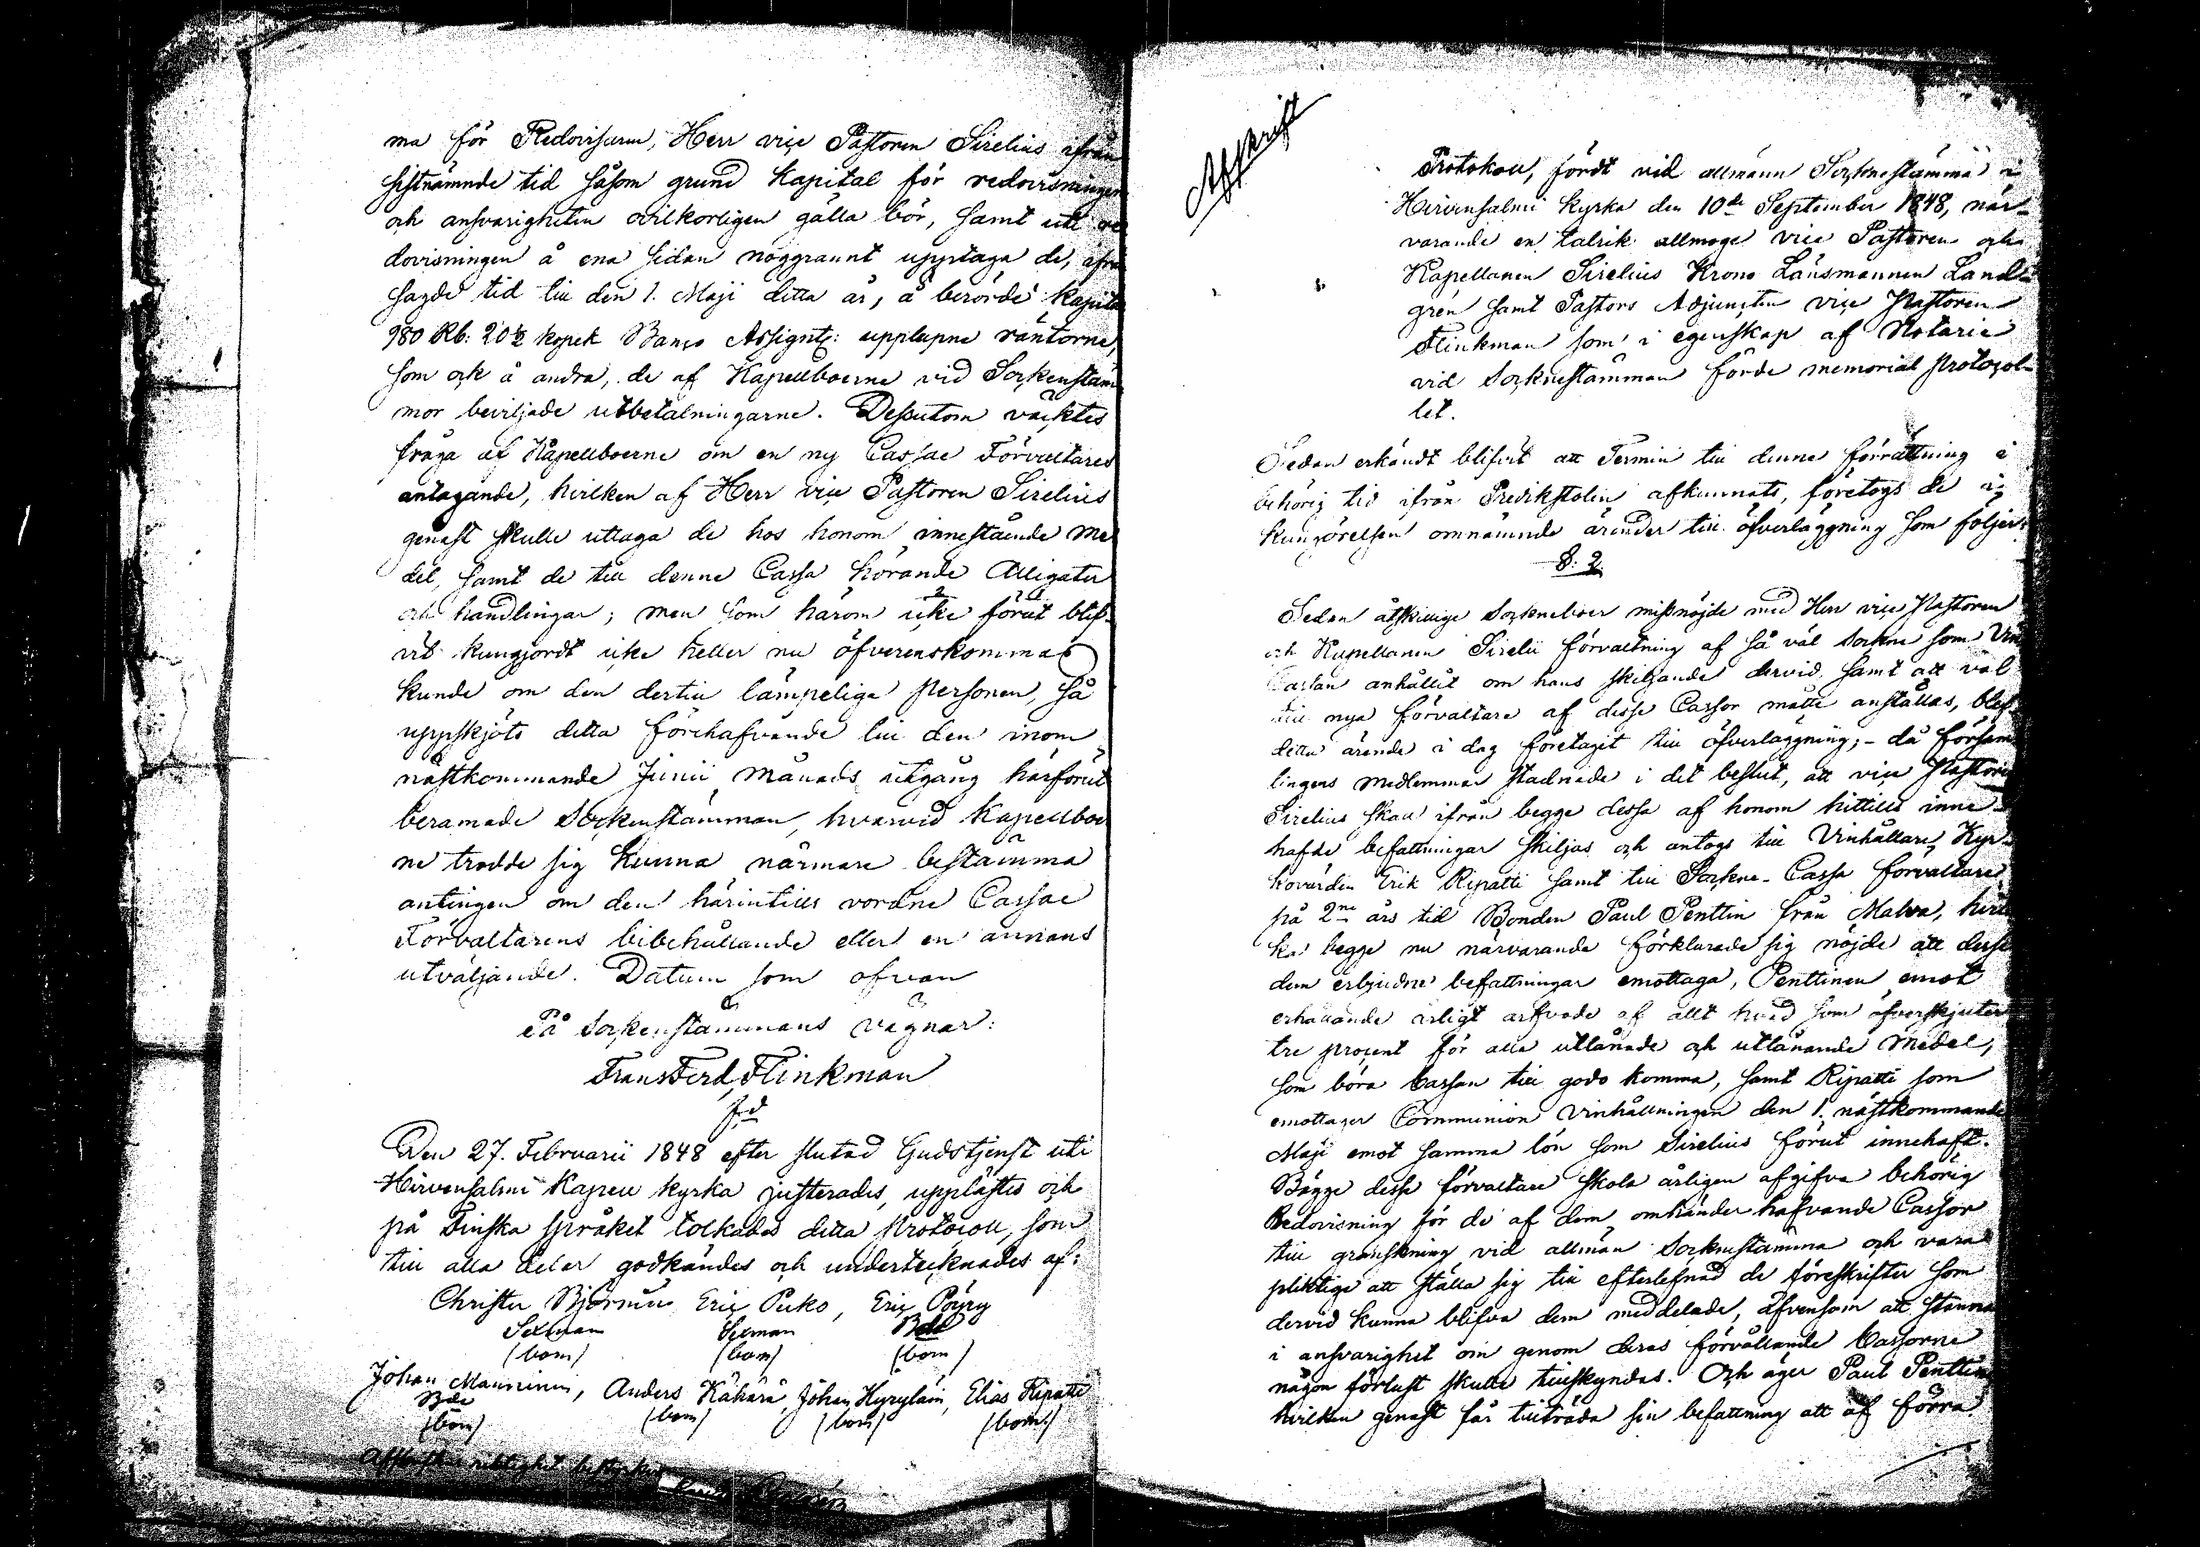 ma för Redovisaren, Herr vice Pastoren Sirelius ifrån
sistnämnde tid såsom grund Kapital för redovisningen
och ansvarigheten ovilkorligen gälla bör, samt uti re
dovisningen å ena sidan noggrannt upptaga de, ifrån
sagde tid till den 1. Maji detta år, å berörde Kapital
980 Rb: 20 kopek Banco Assignt: upplupne räntorne,
som ock å andra, de af Kapellboerne vid Sockenstäm
mor beviljade utbetalningarne. Dessutom väcktes
fråga af Kapellboerne om en ny Cassae Förvaltares
antagande, hvilken af Herr vice Pastoren Sirelius
genast skulle uttaga de hos honom innestående me
del, samt de till denne Cassa hörande Obligater
och handlingar; men som härom icke förut blif-
vit kungjordt icke heller nu öfverenskommas
kunde om den dertill lämpelige personen, så
uppskjöts detta förehafvande till den inom
nästkommande Junii månads utgång härförut
beramade Sockenstämman, hvarvid Kapellboer
ne trodde sig kunna närmare bestämma
antingen om den härintills vordne Cassae
Förvaltarens bibehållande eller en annans
utväljande. Datum som ofvan
På Sockenstämmans vägnar:
Frans Ferd, Flinkman
Den 27. Februarii 1848 efter slutad Gudstjenst uti
Hirvensalmi Kapell kyrka justerades, upplästes och
på Finska språket tolkades detta protocoll, som
till alla delar godkändes och undertecknades af:
Christer Björninen Eric Puko, Eric Pöyry
Sexman Sexman Bde
(bom) (bom) (bom)
Johan Manninen, Anders Kähärä, Johan Hyyryläin, Elias Ripatti
Bde
(bom) (bom) (bom) (bom)
Afskriftens riktighet bestyrker
Afskrift
Protokoll, fördt vid allmänn Socknestämma i
Hirvensalmi kyrka den 10de September 1848, när-
varande en talrik allmoge vice Pastoren och
Kapellanen Sirelius Krono Länsmannen Land-
grén samt Pastors Adjuncten vice Pastoren
Flinkman som i egenskap af Notarie
vid Socknestämman förde memorial protocol-
let.
Sedan erkändt blifvit att Termin till denne förrättning i
behörig tid ifrån Predikstolen afkunnats, företogs de i
kungörelsen omnämnde ärender till öfverläggning som följer:
§. 2.
Sedan åtskillige Sockneboer missnöjde med Herr vice Pastoren
och Kapellanen Sirelii förvaltning af så väl Sockne som Vin
Cassan anhållit om hans skiljande dervid, samt att val
till nya förvaltare af desse Cassor måtte anställas, blef
detta ärende i dag företagit till öfverläggning;- då försam
lingens medlemmar stadnade i det beslut, att vice Pastoren
Sirelius skall ifrån begge dessa af honom hittills inne-
hafde befattningar skiljas och antogs till Vinhållare, Kyr-
kovärden Erik Ripatti samt till Sockne-Cassa förvaltare
på 2ne års tid Bonden Paul Penttin från Malva, hvil
ka begge nu närvarande förklarade sig nöjde att desse
dem erbjudne befattningar emottaga, Penttinen emot
erhållande årligt arfvode af allt hvad som öfverskjuter
tre procent för alla utlånade och utlånande medel,
som böra Cassan till godo komma, samt Ripatti som
emottager Communion Vinhållningen den 1. nästkommande
Maji emot samma lön som Sirelius förut innehaft.
Bägge desse förvaltare skola årligen afgifva behörig
Redovisning för de af dem omhänder hafvande Cassor
till granskning vid allmän Socknestämma och vara
pliktige att ställa sig till efterlefnad de föreskrifter som
dervid kunna blifva dem meddelade, äfvensom att stanna
i ansvarighet om genom deras förvållande Cassorne
någon förlust skulle tillskyndas. Och äger Paul Penttin
hvilken genast får tillträda sin befattning att af förra